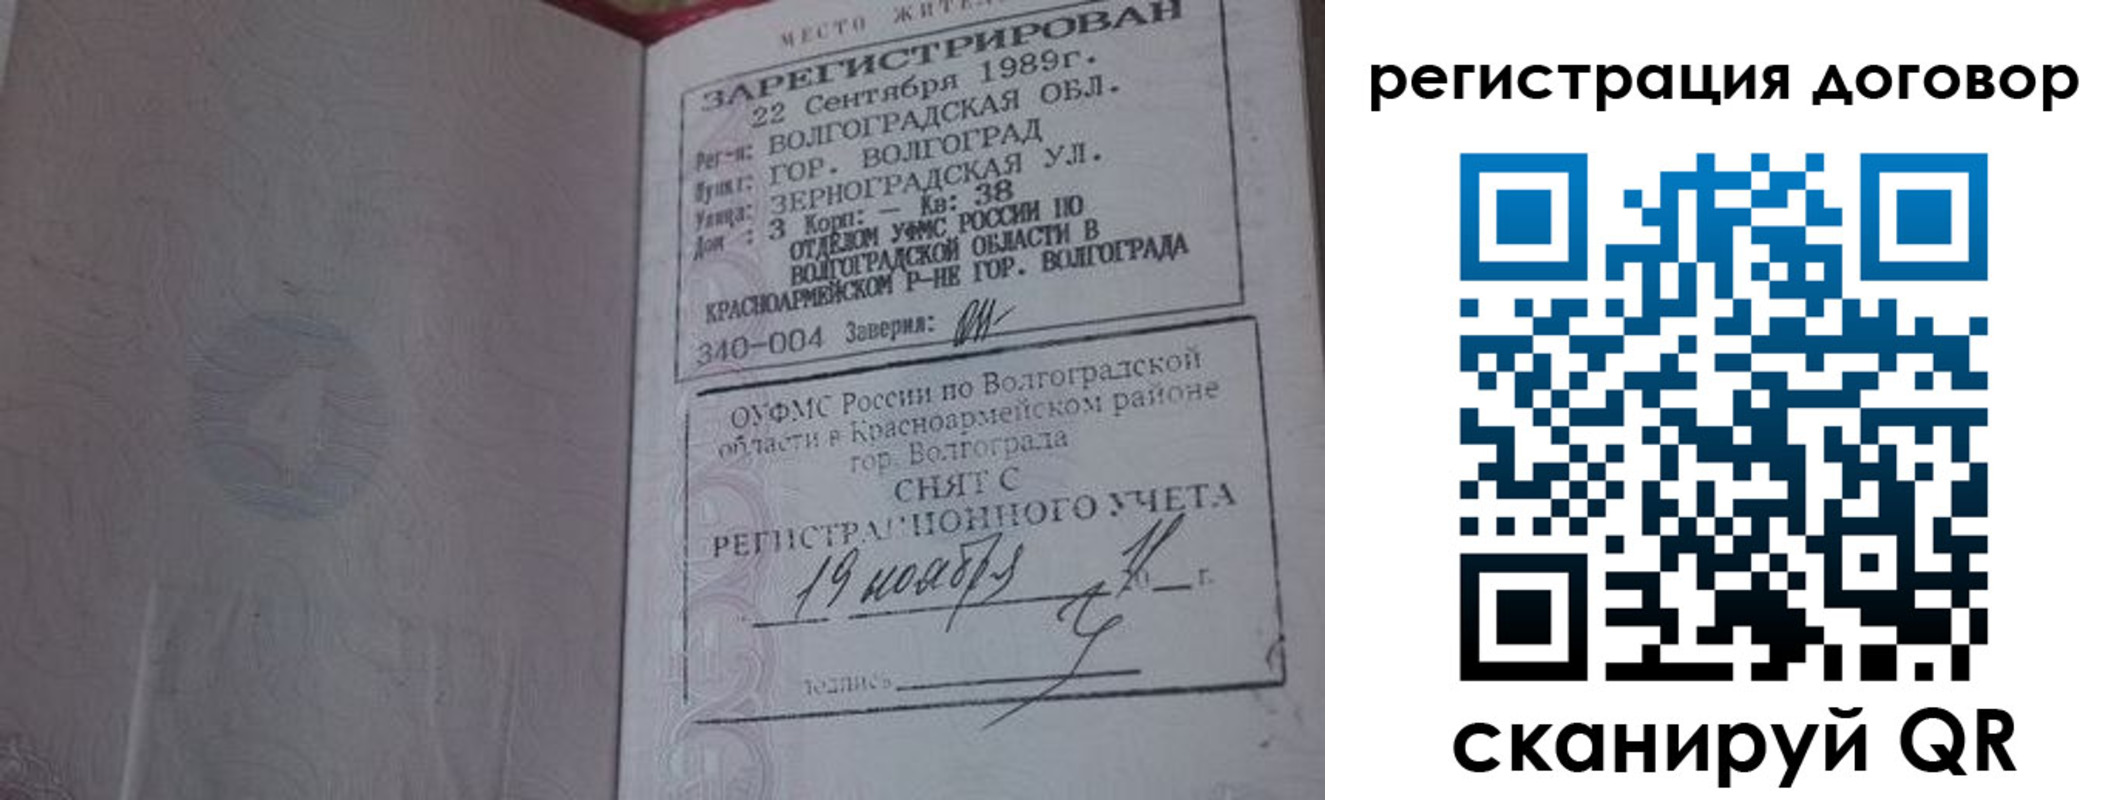 МЕСТО ЖИТЕЛ
ЗАРЕГИСТРИРОВАН
22 Сентября 1989г.
Рег-н: ВОЛГОГРАДСКАЯ ОБЛ.
Пункт: ГОР. ВОЛГОГРАД
Улица: ЗЕРНОГРАДСКАЯ УЛ.
Дом : 3 Корп: — Кв: 38
ОТДЕЛОМ УФМС РОССИИ ПО
ВОЛГОГРАДСКОЙ ОБЛАСТИ В
КРАСНОАРМЕЙСКОМ Р-НЕ ГОР. ВОЛГОГРАДА
340-004 Заверил:
ОУФМС России по Волгоградской
области в Красноармейском районе
гор. Волгограда
СНЯТ С
РЕГИСТРАЦИОННОГО УЧЕТА
19 ноября 20 г.
подпись
регистрация договор
сканируй QR